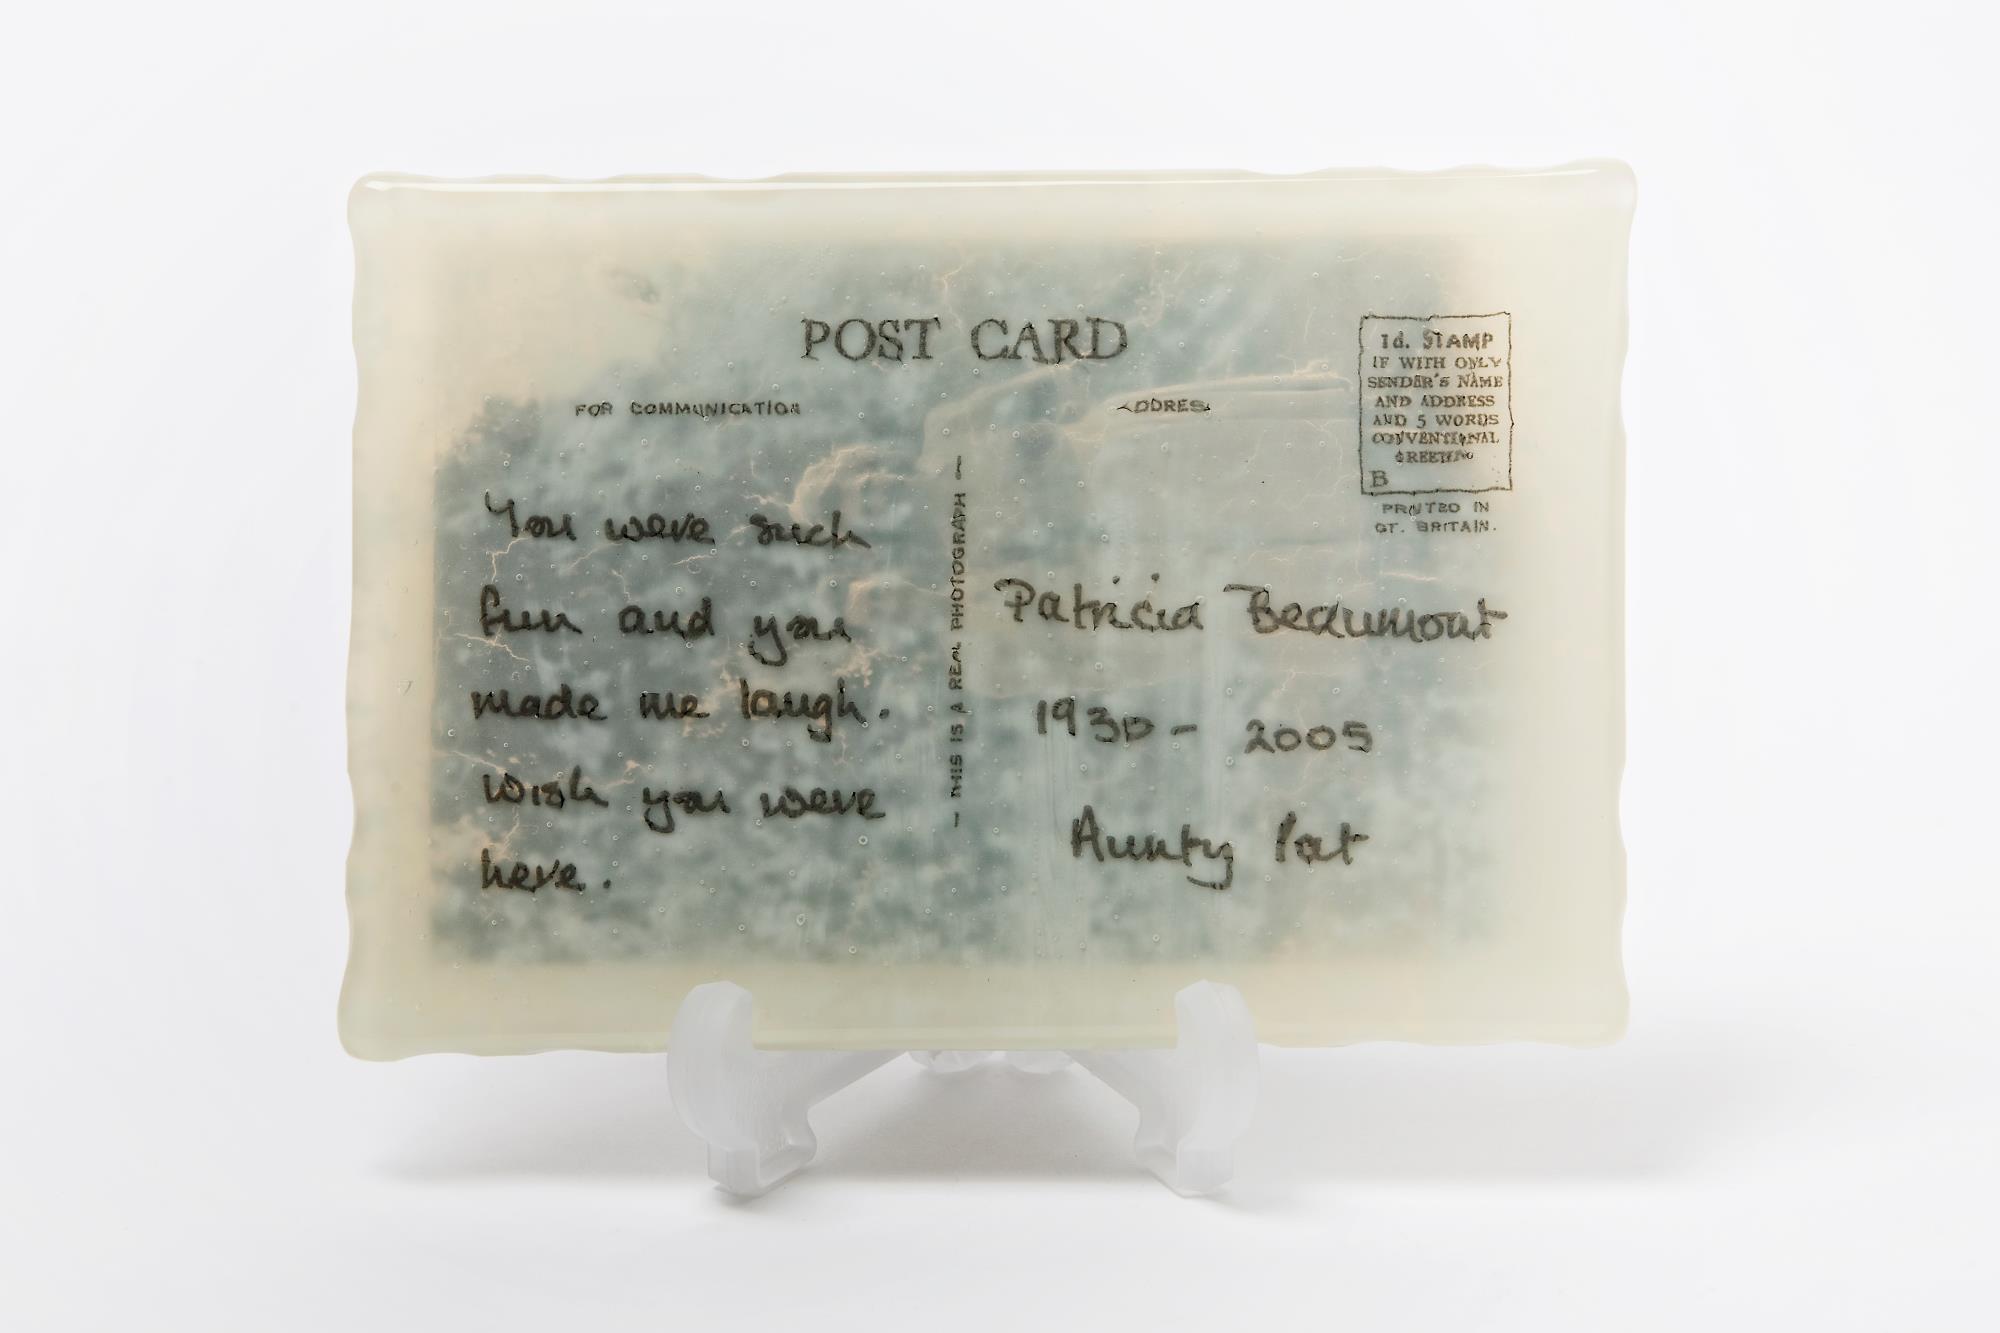 POST CARD
FOR COMMUNICATION
ADDRES
1d. STAMP
IF WITH ONLY
SENDER'S NAME
AND ADDRESS
AND 5 WORDS
CONVENTIONAL
GREETING
B
PRINTED IN
GT. BRITAIN.
You were such
fun and you
made me laugh.
Wish you were
here.
- THIS IS A REAL PHOTOGRAPH -
Patricia Beaumont
1930 - 2005
Aunty Pat